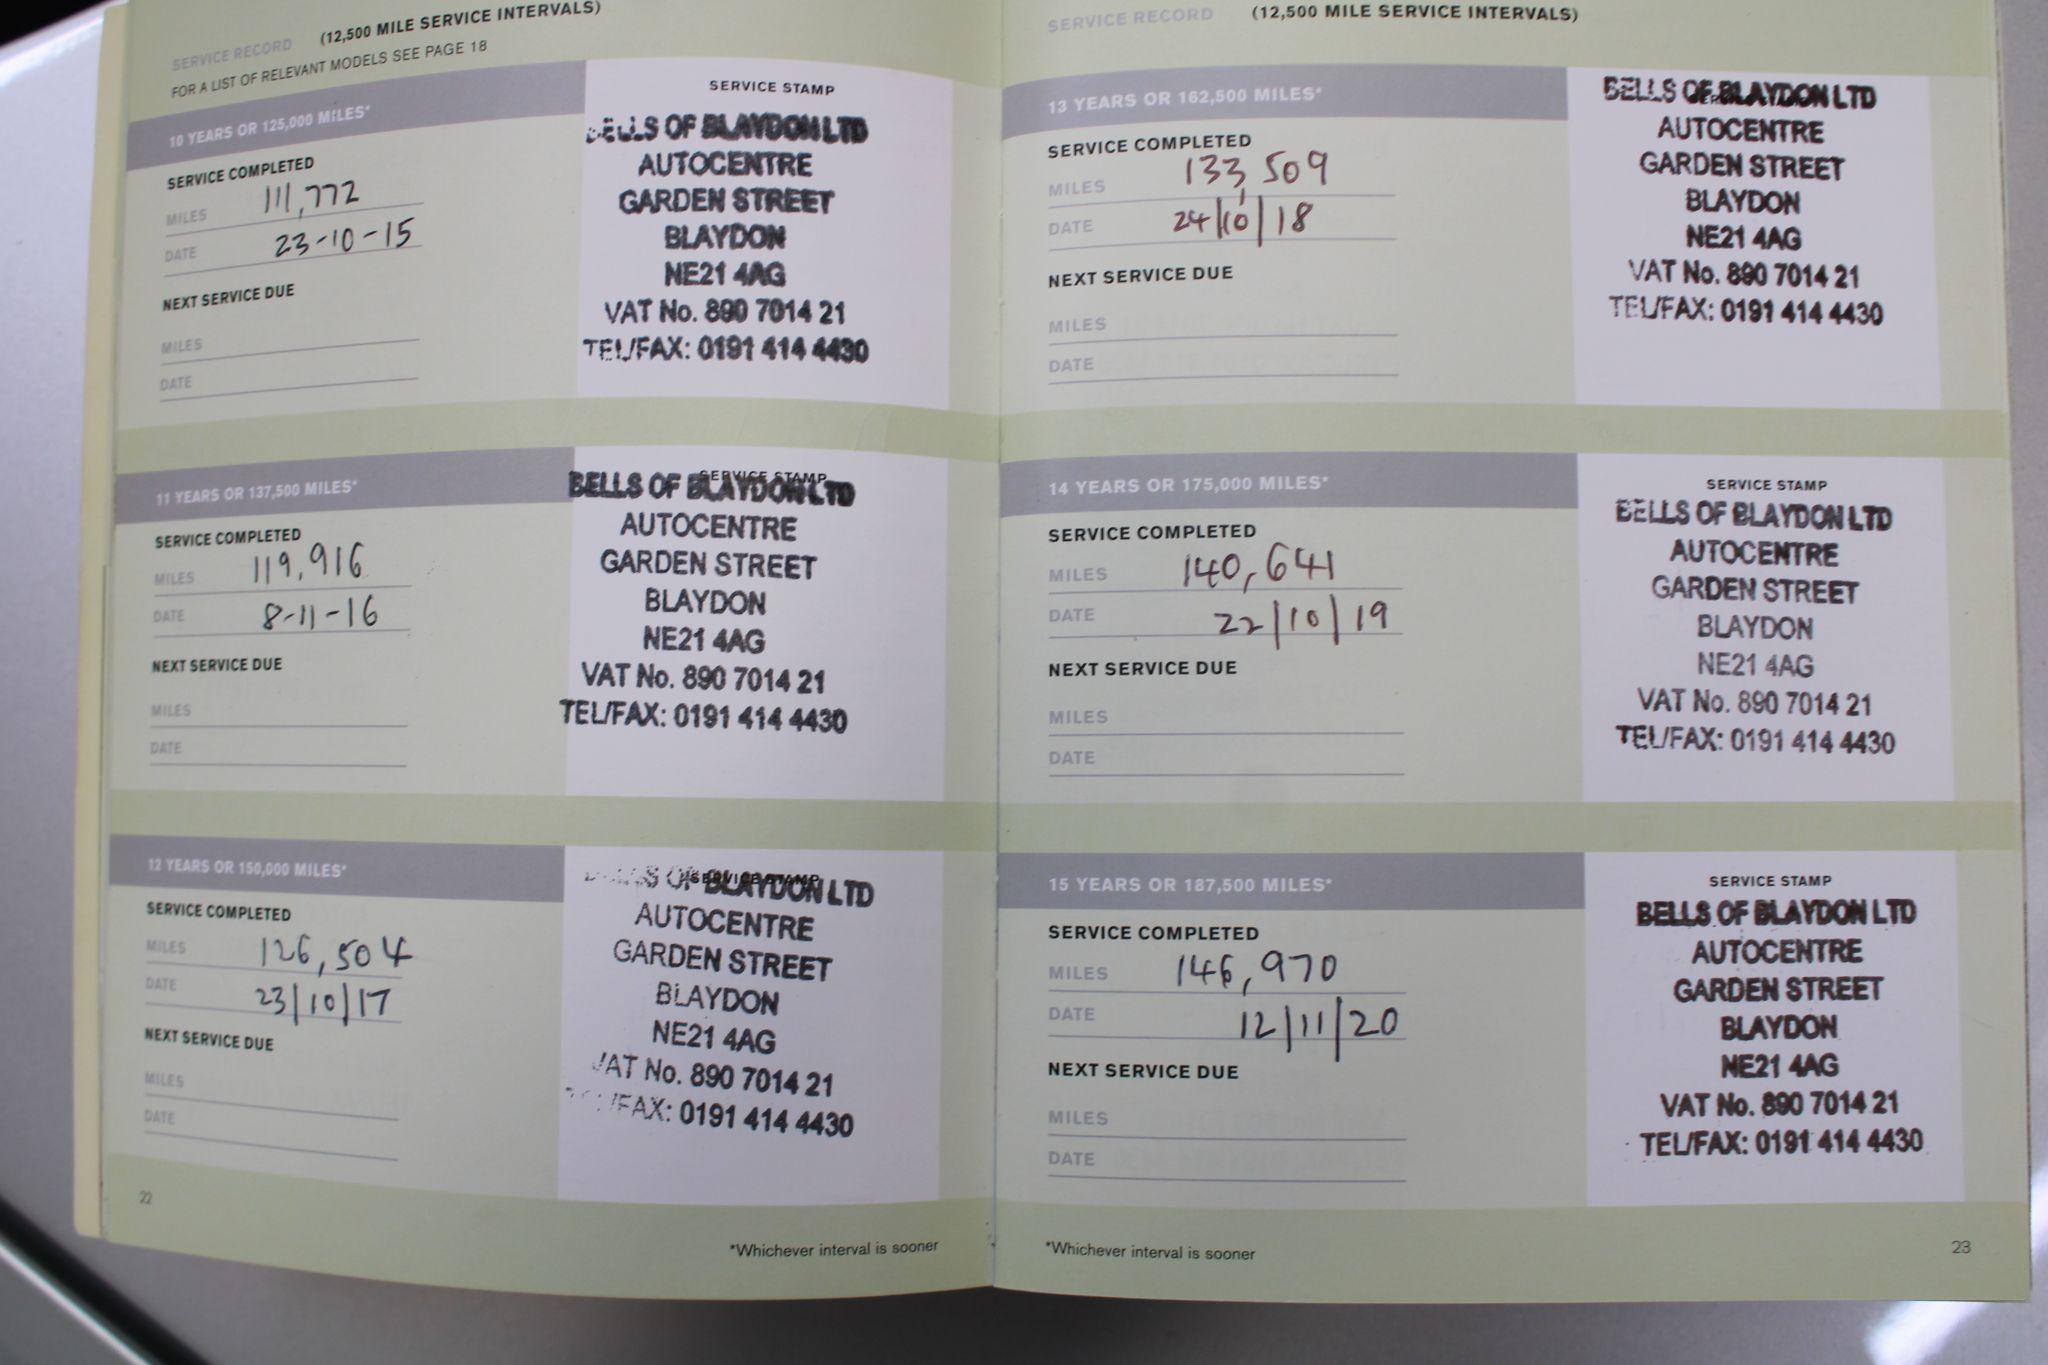 SERVICE RECORD (12,500 MILE SERVICE INTERVALS)
FOR A LIST OF RELEVANT MODELS SEE PAGE 18
10 YEARS OR 125,000 MILES*
SERVICE COMPLETED
MILES 111,772
DATE 23-10-15
NEXT SERVICE DUE
MILES
DATE
SERVICE STAMP
BELLS OF BLAYDON LTD
AUTOCENTRE
GARDEN STREET
BLAYDON
NE21 4AG
VAT No. 890 7014 21
TEL/FAX: 0191 414 4430
11 YEARS OR 137,500 MILES*
SERVICE COMPLETED
MILES 119,916
DATE 8-11-16
NEXT SERVICE DUE
MILES
DATE
SERVICE STAMP
BELLS OF BLAYDON LTD
AUTOCENTRE
GARDEN STREET
BLAYDON
NE21 4AG
VAT No. 890 7014 21
TEL/FAX: 0191 414 4430
12 YEARS OR 150,000 MILES*
SERVICE COMPLETED
MILES 126,504
DATE 23/10/17
NEXT SERVICE DUE
MILES
DATE
SERVICE STAMP
BELLS OF BLAYDON LTD
AUTOCENTRE
GARDEN STREET
BLAYDON
NE21 4AG
VAT No. 890 7014 21
TEL/FAX: 0191 414 4430
22
*Whichever interval is sooner
SERVICE RECORD (12,500 MILE SERVICE INTERVALS)
13 YEARS OR 162,500 MILES*
SERVICE COMPLETED
MILES 133,509
DATE 24/10/18
NEXT SERVICE DUE
MILES
DATE
BELLS OF BLAYDON LTD
AUTOCENTRE
GARDEN STREET
BLAYDON
NE21 4AG
VAT No. 890 7014 21
TEL/FAX: 0191 414 4430
14 YEARS OR 175,000 MILES*
SERVICE COMPLETED
MILES 140,641
DATE 22/10/19
NEXT SERVICE DUE
MILES
DATE
SERVICE STAMP
BELLS OF BLAYDON LTD
AUTOCENTRE
GARDEN STREET
BLAYDON
NE21 4AG
VAT No. 890 7014 21
TEL/FAX: 0191 414 4430
15 YEARS OR 187,500 MILES*
SERVICE COMPLETED
MILES 146,970
DATE 12/11/20
NEXT SERVICE DUE
MILES
DATE
SERVICE STAMP
BELLS OF BLAYDON LTD
AUTOCENTRE
GARDEN STREET
BLAYDON
NE21 4AG
VAT No. 890 7014 21
TEL/FAX: 0191 414 4430
*Whichever interval is sooner
23